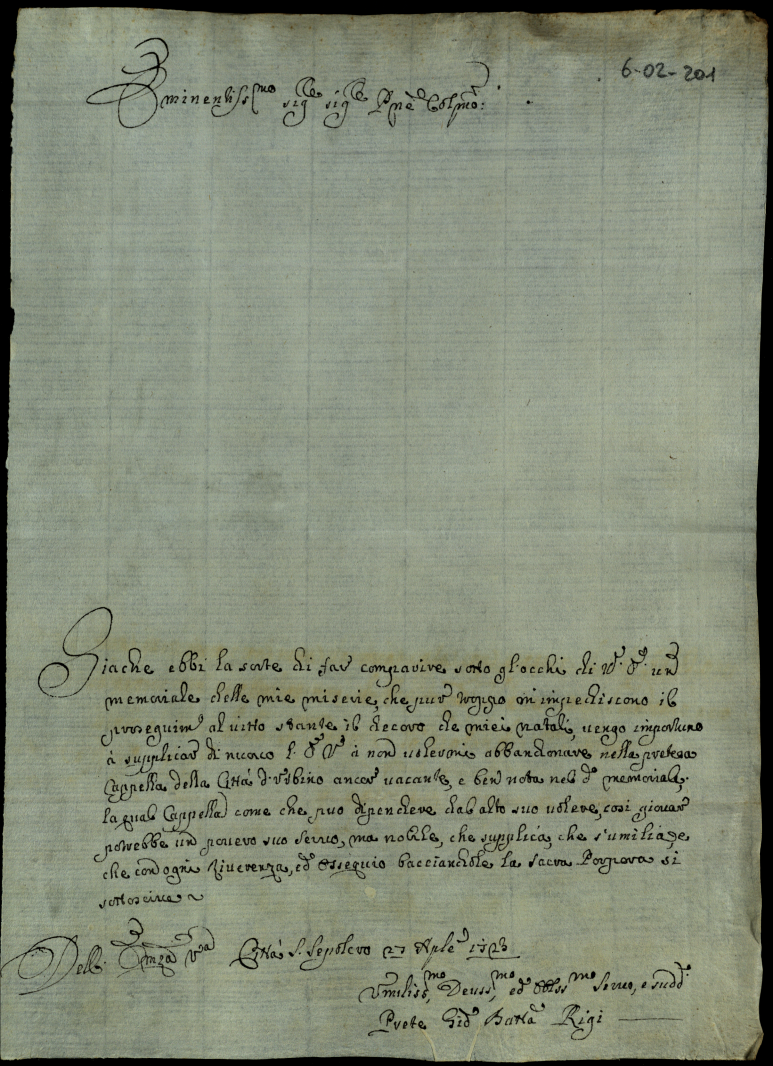 6-02-201
Eminentiss.mo sig.re sig.re P.ne Col.mo:
Giache ebbi la sorte di far comparire sotto gl'occhi di V. E. un
memoriale delle mie miserie, che pur troppo m'impediscono il
proseguim.o al vitto stante il decoro de miei natali, vengo importuno
à supplicar di nuovo l' E. V. à non volermi abbandonare nella pretesa
Cappella della Città d'Urbino ancor vacante, e ben nota nel d.o memoriale,
la qual Cappella come che può dipendere dal alto suo volere, così giovar
potrebbe un povero suo servo, ma nobile, che supplica, che s'umilia, e
che con ogni riverenza, ed ossequio bacciandole la sacra Porpora si
sottoscive
Dell' Em.za V.ra Città S. Sepolcro 27 Ap.le
Umiliss.mo, Devss.mo, ed Obblss.mo Servo, e sudd.o
Prete Gio Batta Rigi